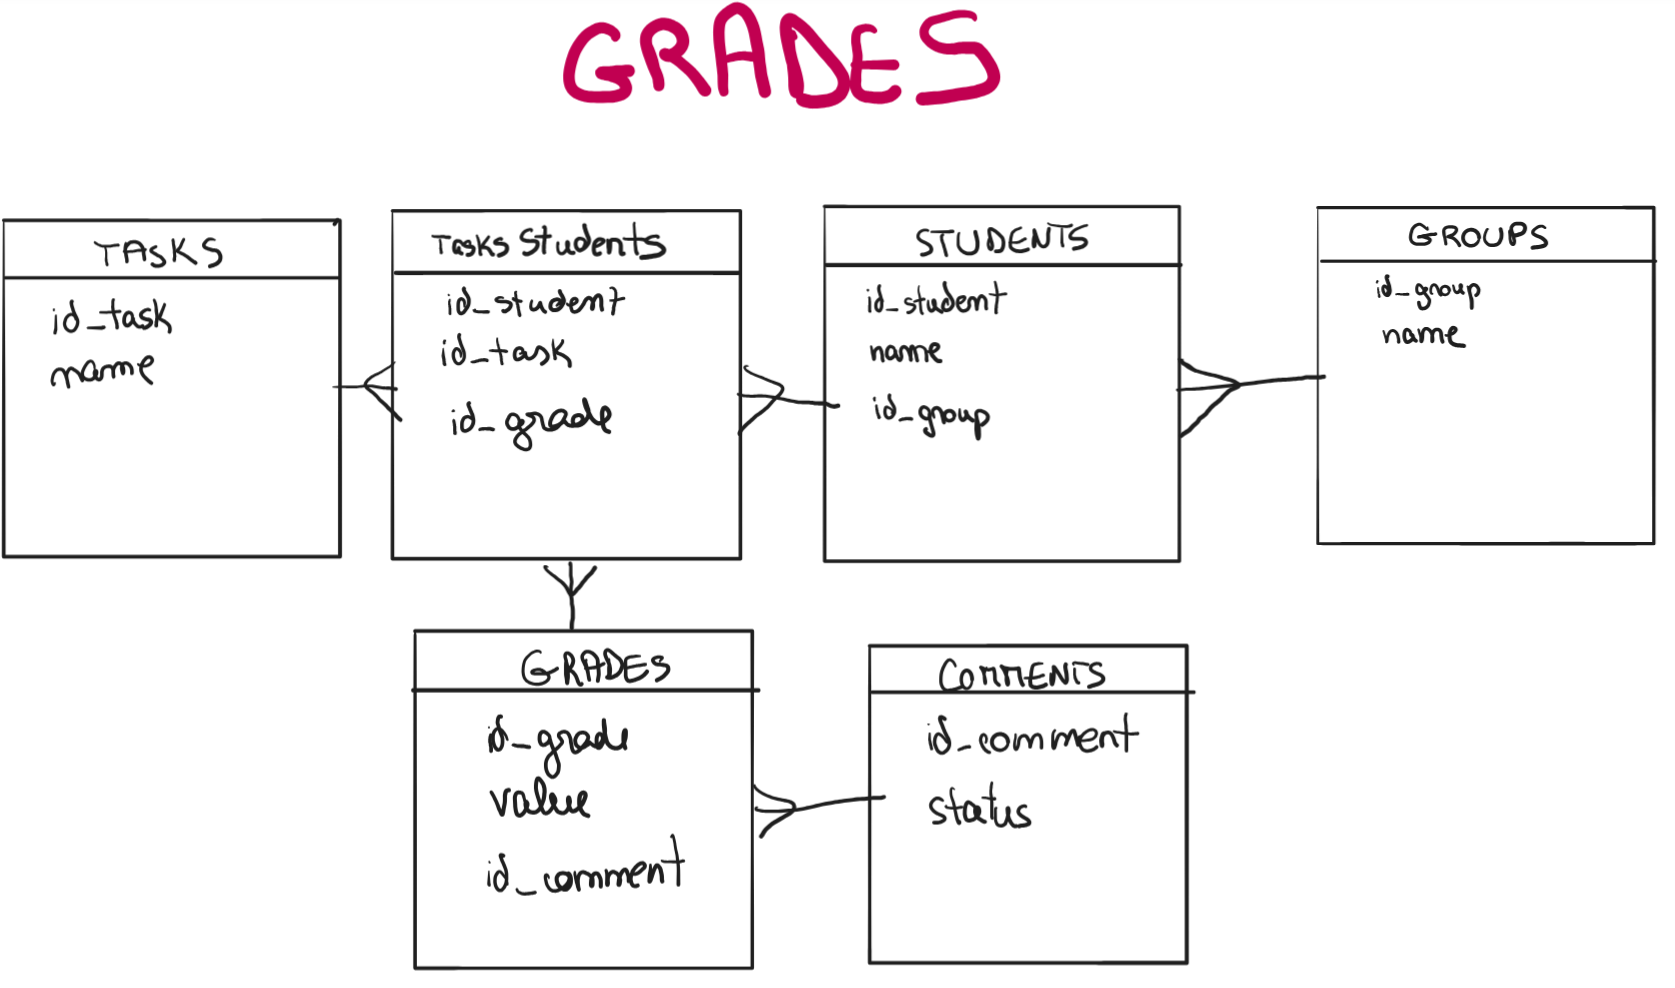 GRADES
TASKS
id_task
name
Tasks Students
id_student
id_task
id_grade
STUDENTS
id_student
name
id_group
GROUPS
id_group
name
GRADES
id_grade
value
id_comment
COMMENTS
id_comment
status